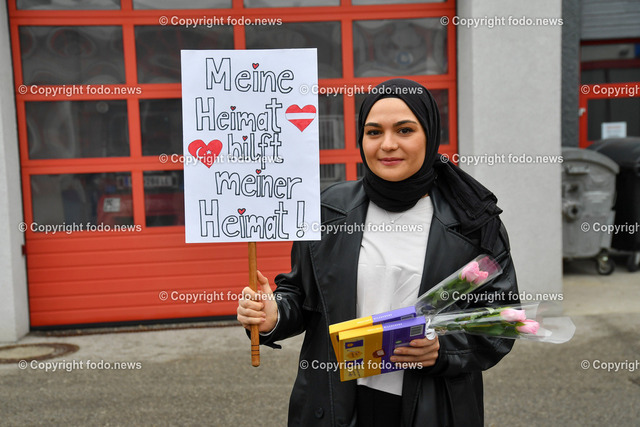 © Copyright fodo.news © Copyright fodo.news © Copyright fodo.news
Meine
Heimat
hilft
meiner
Heimat!
© Copyright fodo.news © Copyright fodo.news © Copyright fodo.news
© Copyright fodo.news © Copyright fodo.news © Copyright fodo.news
© Copyright fodo.news © Copyright fodo.news © Copyright fodo.news
© Copyright fodo.news © Copyright fodo.news © Copyright fodo.news
© Copyright fodo.news © Copyright fodo.news © Copyright fodo.news